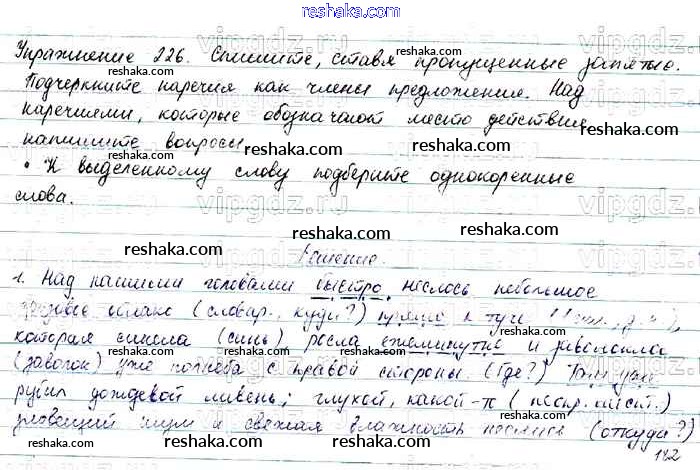 reshaka.com
Упражнение 226. Спишите, ставя пропущенные запятые.
reshaka.com
Подчеркните наречия как члены предложения. Над
наречиями, которые обозначают место действия
напишите вопросы.
reshaka.com reshaka.com
• К выделенному слову подберите однокоренные
слова.
reshaka.com reshaka.com
Решение.
1. Над нашими головами быстро неслось небольшое
облако (словар., куда?) прямо к туче
reshaka.com reshaka.com
которая синела (синь) росла ежеминутно и заволокла
(заволок) уже полнеба с правой стороны. (Где?) Там уже
reshaka.com reshaka.com
рубил дождевой ливень; глухой, какой-то
зловещий шум и свежая влажность неслись (откуда?)
reshaka.com reshaka.com
182